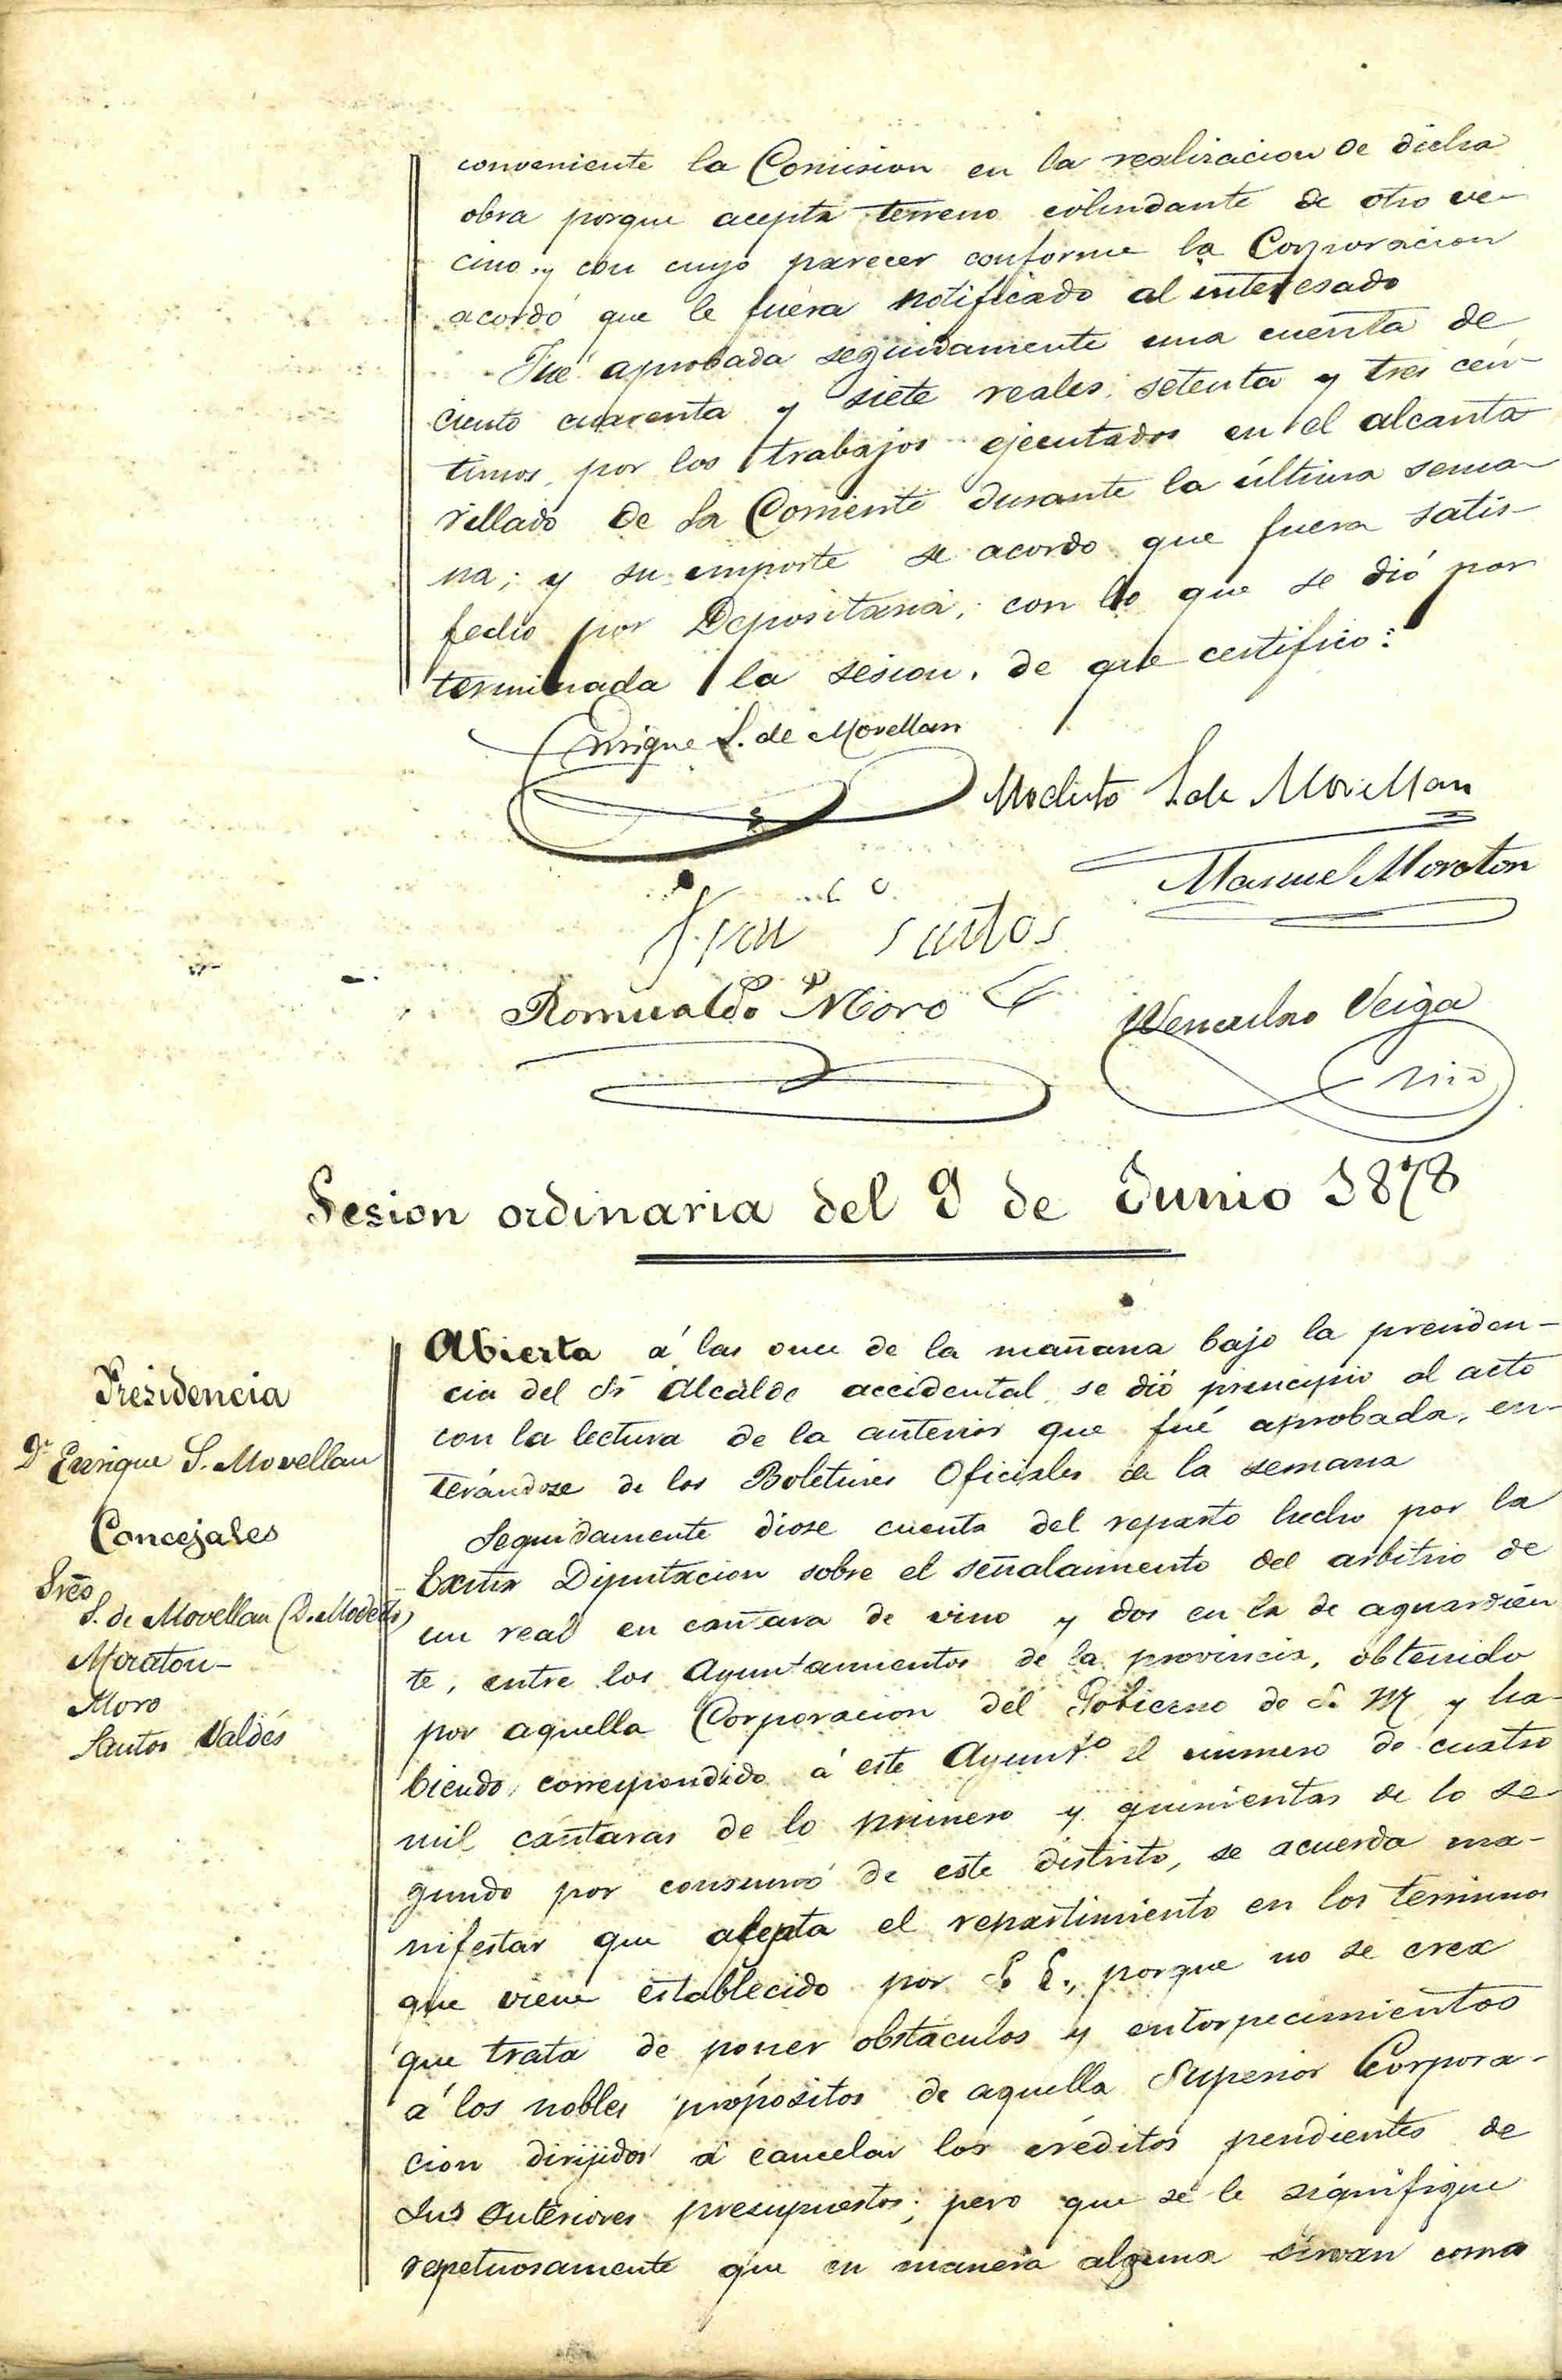 conveniente la Comision en la realizacion de dicha
obra porque acepta terreno colindante de otro ve-
cino, y con cuyo parecer conforme la Corporacion
acordó que le fuéra notificado al interesado
Fué aprobada seguidamente una cuenta de
ciento cuarenta y siete reales setenta y tres cén-
timos, por los trabajos ejecutados en el alcanta
rillado de La Corriente durante la última sema-
na; y su importe se acordo que fuera satis-
fecho por Depositaria; con lo que se dió por
terminada la sesion, de que certifico:
Enrique S. de Movellan
Modesto S. de Movellan
Manuel Moraton
Juan Santos
Romualdo Moro
Wenceslao Veiga
Srio
Sesion ordinaria del 9 de Junio 1878
Presidencia
Dn Enrique S. Movellan
Concejales
Sres
S. de Movellan (D. Modesto)
Moraton-
Moro
Santos Valdés
Abierta á las once de la mañana bajo la presiden-
cia del Sr Alcalde accidental, se dió principio al acto
con la lectura de la anterior que fué aprobada, en-
terándose de los Boletines Oficiales de la semana
Seguidamente diose cuenta del reparto hecho por la
Exma Diputacion sobre el señalamiento del arbitrio de
un real en cantara de vino y dos en la de aguardien
te, entre los Ayuntamientos de la provincia, obtenido
por aquella Corporacion del Gobierno de S. M. y ha-
biendo correspondido á este Ayunto el número de cuatro
mil cántaras de lo primero y quinientas de lo se-
gundo por consumo de este distrito, se acuerda ma-
nifestar que acepta el repartimiento en los terminos
que viene establecido por S. E., porque no se crea
que trata de poner obstáculos y entorpecimientos
á los nobles propósitos de aquella Superior Corpora-
cion dirijidos á cancelar los créditos pendientes de
sus anteriores presupuestos; pero que se le signifique
repetuosamente que en manera alguna sirvan como